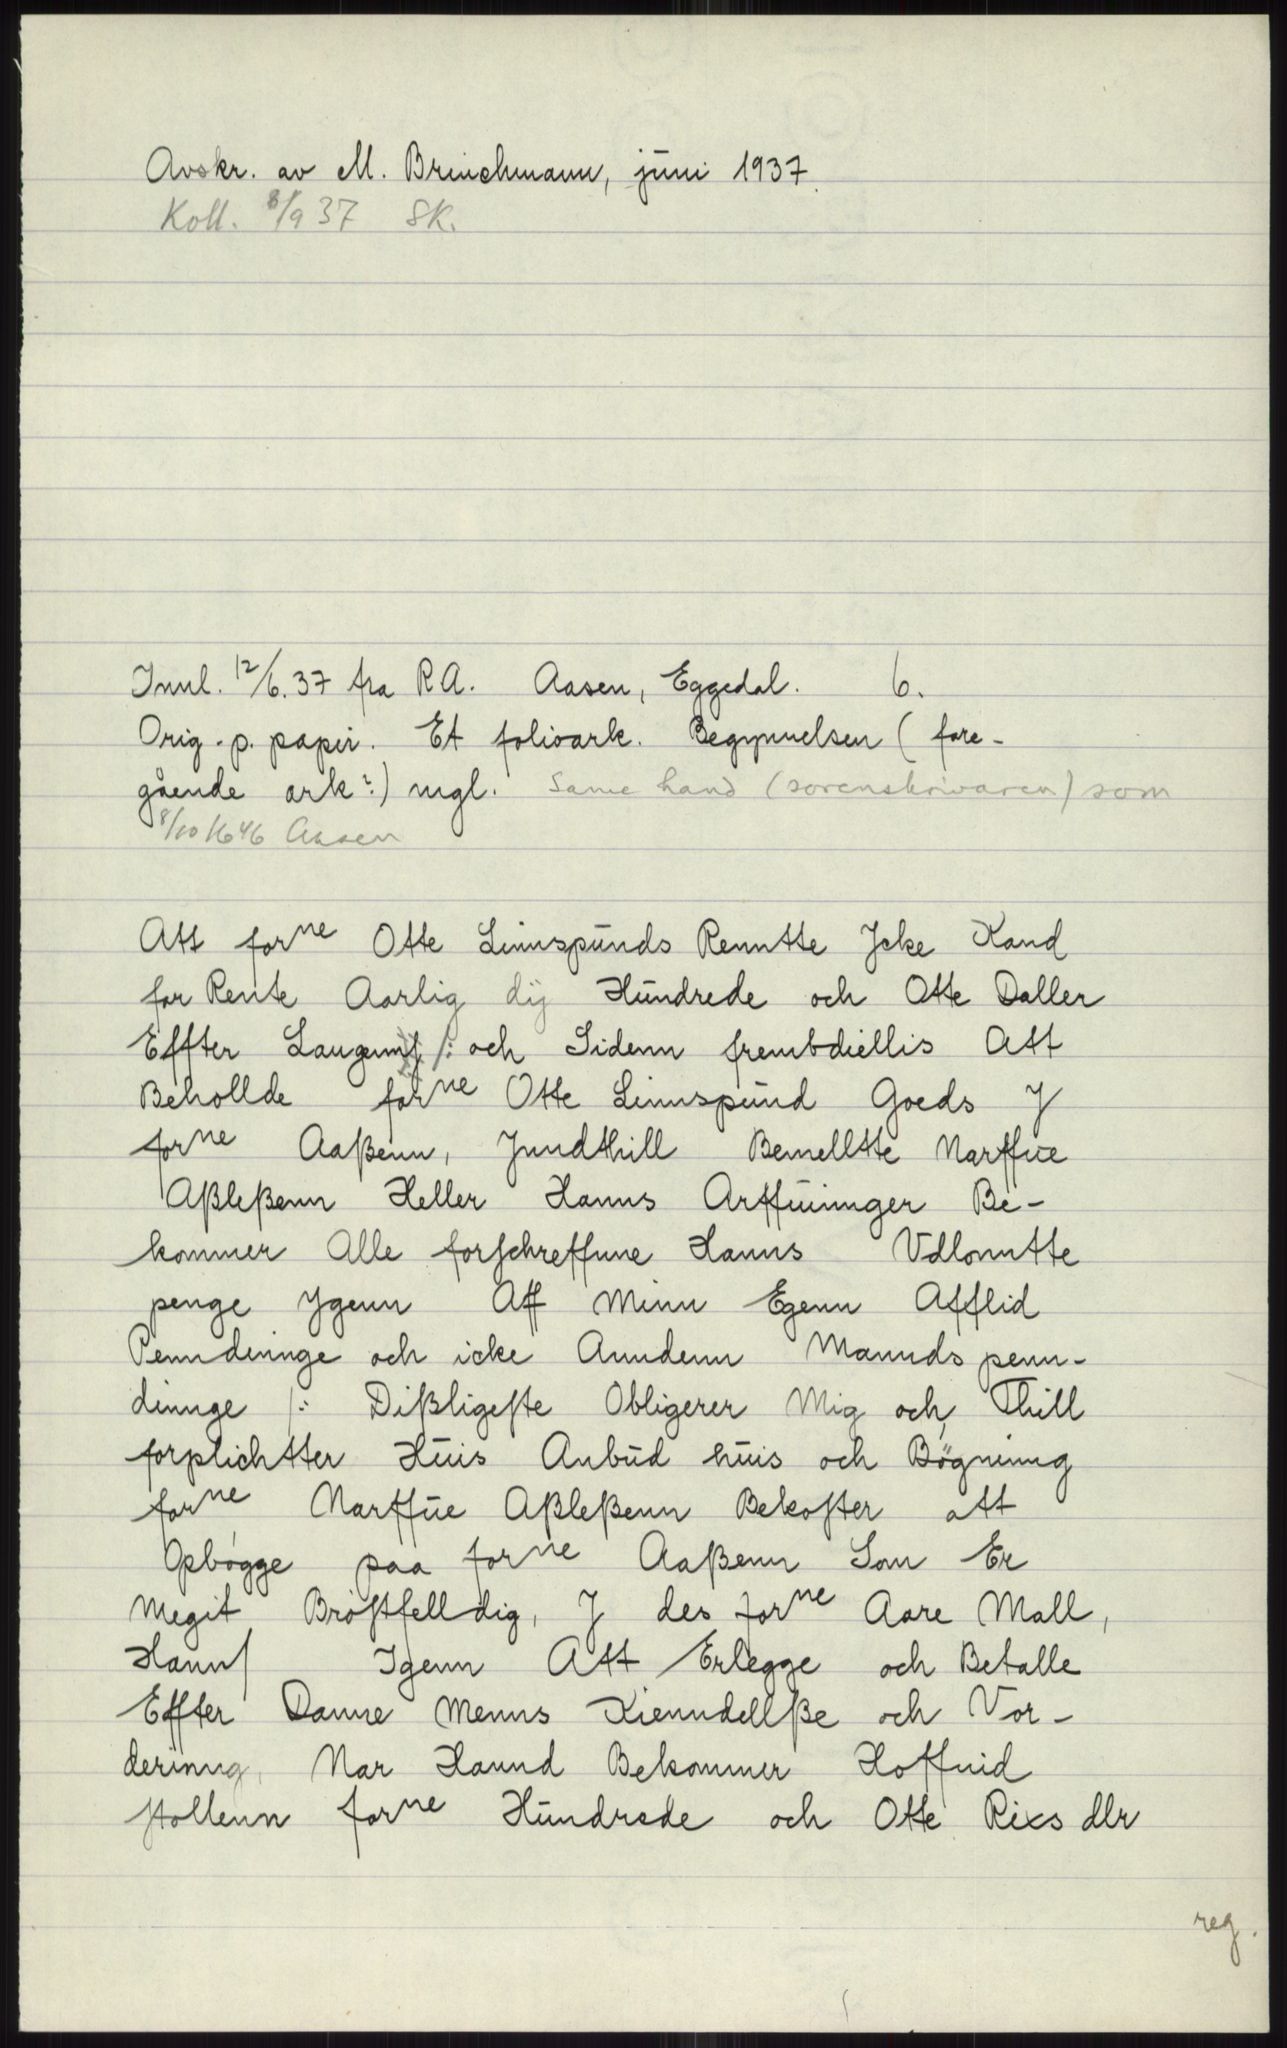 Avskr. av M. Brinchmann, juni 1937.
Koll. 8/9 37 SK.
Innl. 12/6. 37 fra R.A. Aasen, Eggedal. 6.
Orig. p. papir. Et folioark. Begynnelsen (fore-
gående ark?) mgl. Same hand (sorenskrivaren) som
8/10 1646 Aasen
Att forne Otte Linnspunds Renntte Jcke Kand
for Rente Aarlig dij Hundrede och Otte Daller
Effter Laugenn /: och Sidenn frembdiellis Att
Behollde forne Otte Linnspund Goeds J
forne Aaßenn, Jnndthill Bemelltte Narffue
Aßleßenn Heller Hanns Arffuinnger Be-
kommer Alle forschreffune Hanns Vdlonntte
penge Ygenn Aff Minn Egenn Afflid
Penndinnge och icke Anndenn Mannds penn-
dinnge /: Dißligeste Obligerer Mig och Thill
forplichtter Huis Anbud huis och Bögninng
forne Narffue Aßleßenn Bekoster att
Opbögge paa forne Aaßenn Som Er
Megit Bröstfelldig, J des forne Aare Mall,
Hannß Igenn Att Erlegge och Betalle
Effter Danne Menns Kienndellße och Vor-
derinng, Nar Hannd Bekommer Hoffuid
stollenn forne Hundrede och Otte Rixs dlr
reg.